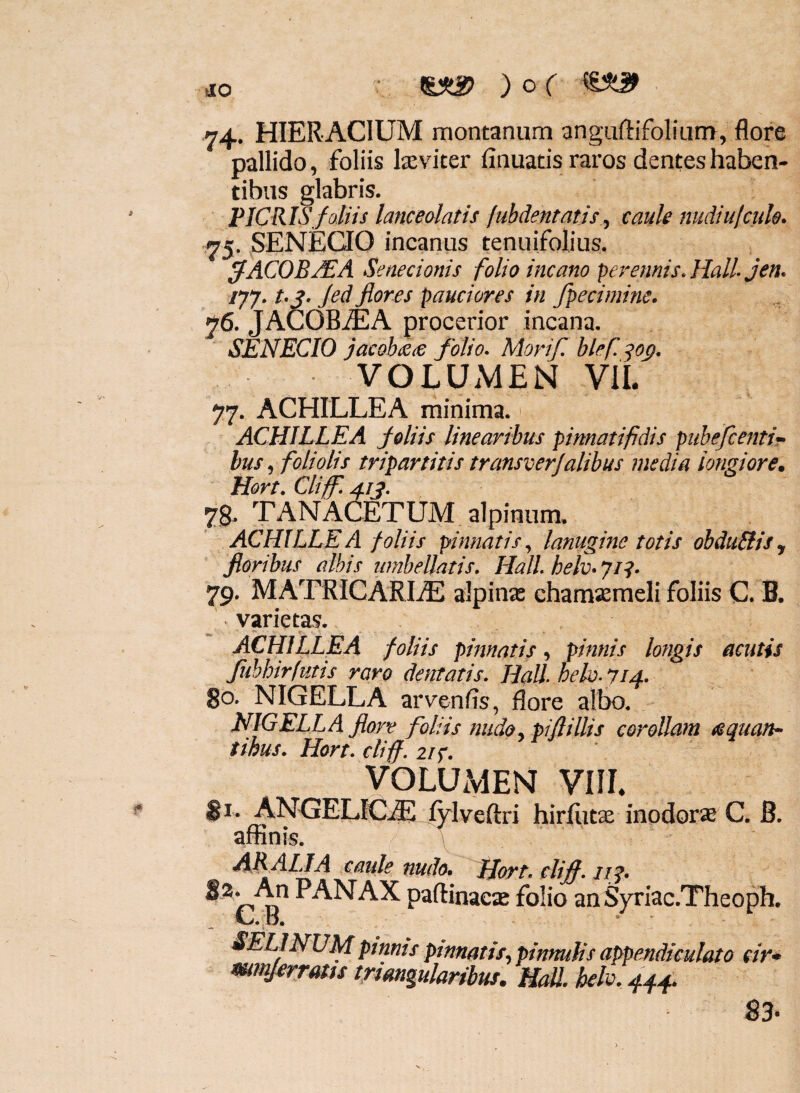 10 ) o (
74. HIERACIUM montanum anguſtifolium, flore
pallido, foliis læviter ſinuatis raros dentes haben-
tibus glabris.
PICRIS foliis lanceolatis ſubdentatis, caule nudiuſculo.
75. SENECIO incanus tenuifolius.
JACOBÆA Senecionis folio incano perennis. Hall. jen.
177. t. 3. ſed flores pauciores in ſpecimine.
76. JACOBÆA procerior incana.
SENECIO jacobææ folio. Moriſ. bleſ. 309.
VOLUMEN VII.
77. ACHILLEA minima.
ACHILLEA foliis linearibus pinnatifidis pubeſcenti-
bus, foliolis tripartitis transverſalibus media longiore.
Hort. Cliff. 413.
78. TANACETUM alpinum.
ACHILLEA foliis pinnatis, lanugine totis obductis,
floribus albis umbellatis. Hall. helv. 713.
79. MATRICARIÆ alpinæ chamæmeli foliis C. B.
varietas.
ACHILLEA foliis pinnatis, pinnis longis acutis
ſubhirſutis raro dentatis. Hall. helv. 714.
80. NIGELLA arvenſis, flore albo.
NIGELLA flore foliis nudo, piſtillis corollam æquan-
tibus. Hort. cliff. 215.
VOLUMEN VIII.
81. ANGELICÆ ſylveſtri hirſutæ inodoræ C. B.
affinis.
ARALIA caule nudo. Hort. cliff. 113.
82. An PANAX paſtinacæ folio an Syriac. Theoph.
C. B.
SELINUM pinnis pinnatis, pinnulis appendiculato cir-
cumſerratis triangularibus. Hall. helv. 444.
83.